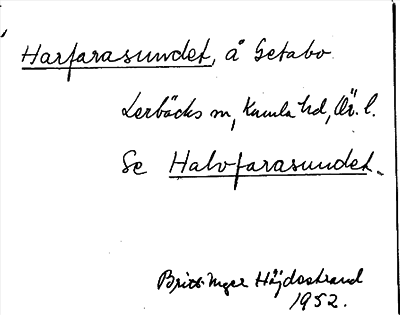 Harfarasundet, å Getabo
Lerbäcks sn, Kumla hd, Ör. l.
Se Halvfarasundet.
Britt-Inger Höjdestrand
1952.